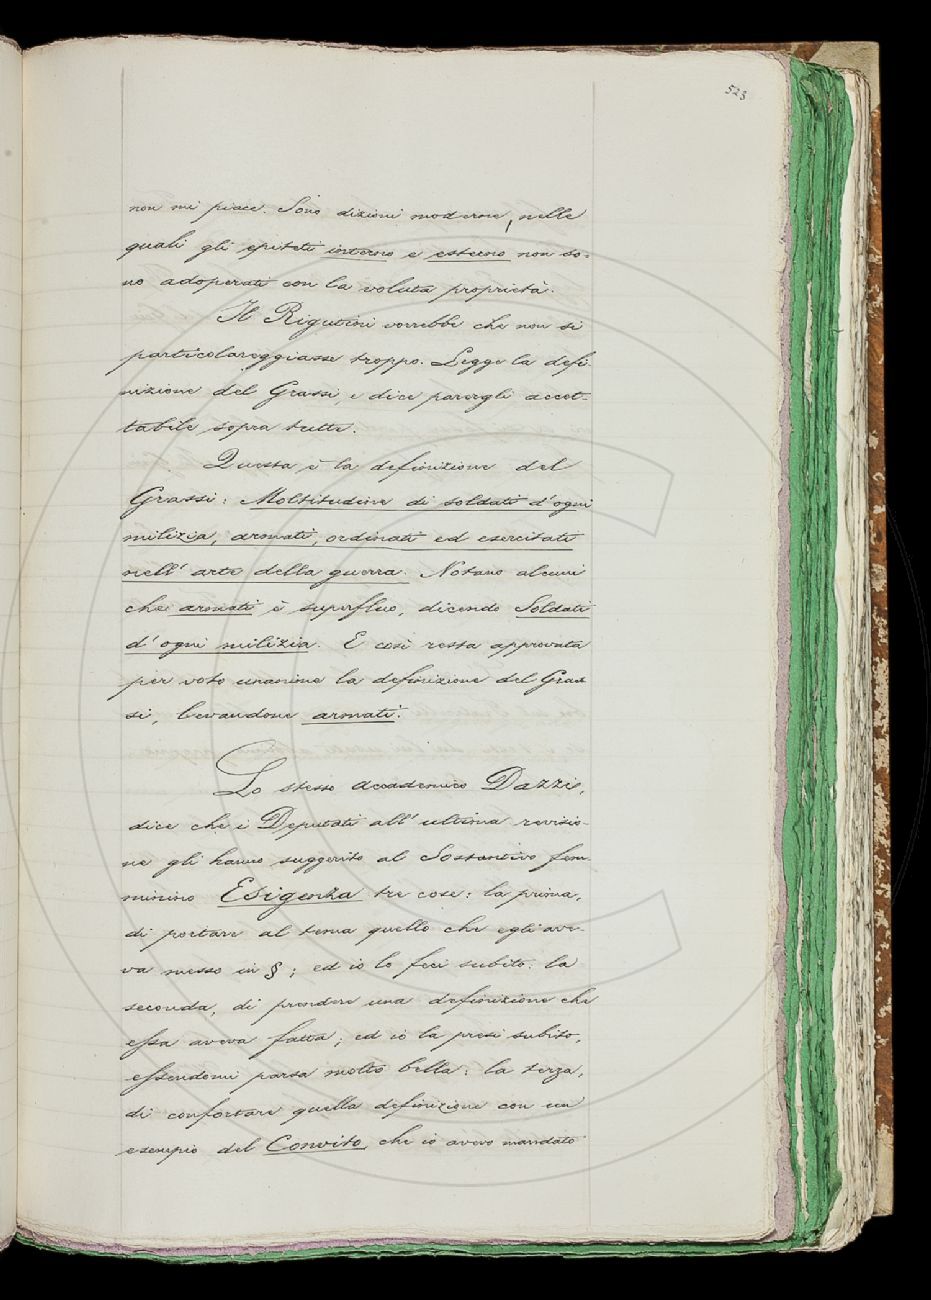 523
non mi piace. Sono dizioni moderne, nelle
quali gli epiteti interno e esterno non so=
no adoperati con la voluta proprietà.
Il Rigutini vorrebbe che non si
particolareggiasse troppo. Legge la defi-
nizione del Grassi, e dice parergli accet-
tabile sopra tutte.
Questa è la definizione del
Grassi: Moltitudine di soldati d'ogni
milizia, armati, ordinati ed esercitati
nell'arte della guerra. Notano alcuni
che armati è superfluo, dicendo Soldati
d'ogni milizia. E così resta approvata
per voto unanime la definizione del Gras
si, levandone armati.
Lo stesso accademico Dazzi,
dice che i Deputati all'ultima revisio-
ne gli hanno suggerito al Sostantivo fem-
minino Esigenza tre cose: la prima,
di portare al tema quello che egli ave-
va messo in §; ed io lo feci subito: la
seconda, di prendere una definizione che
essa aveva fatta; ed io la presi subito,
essendomi parsa molto bella: la terza,
di confortare quella definizione con un
esempio del Convito, che io avevo mandato